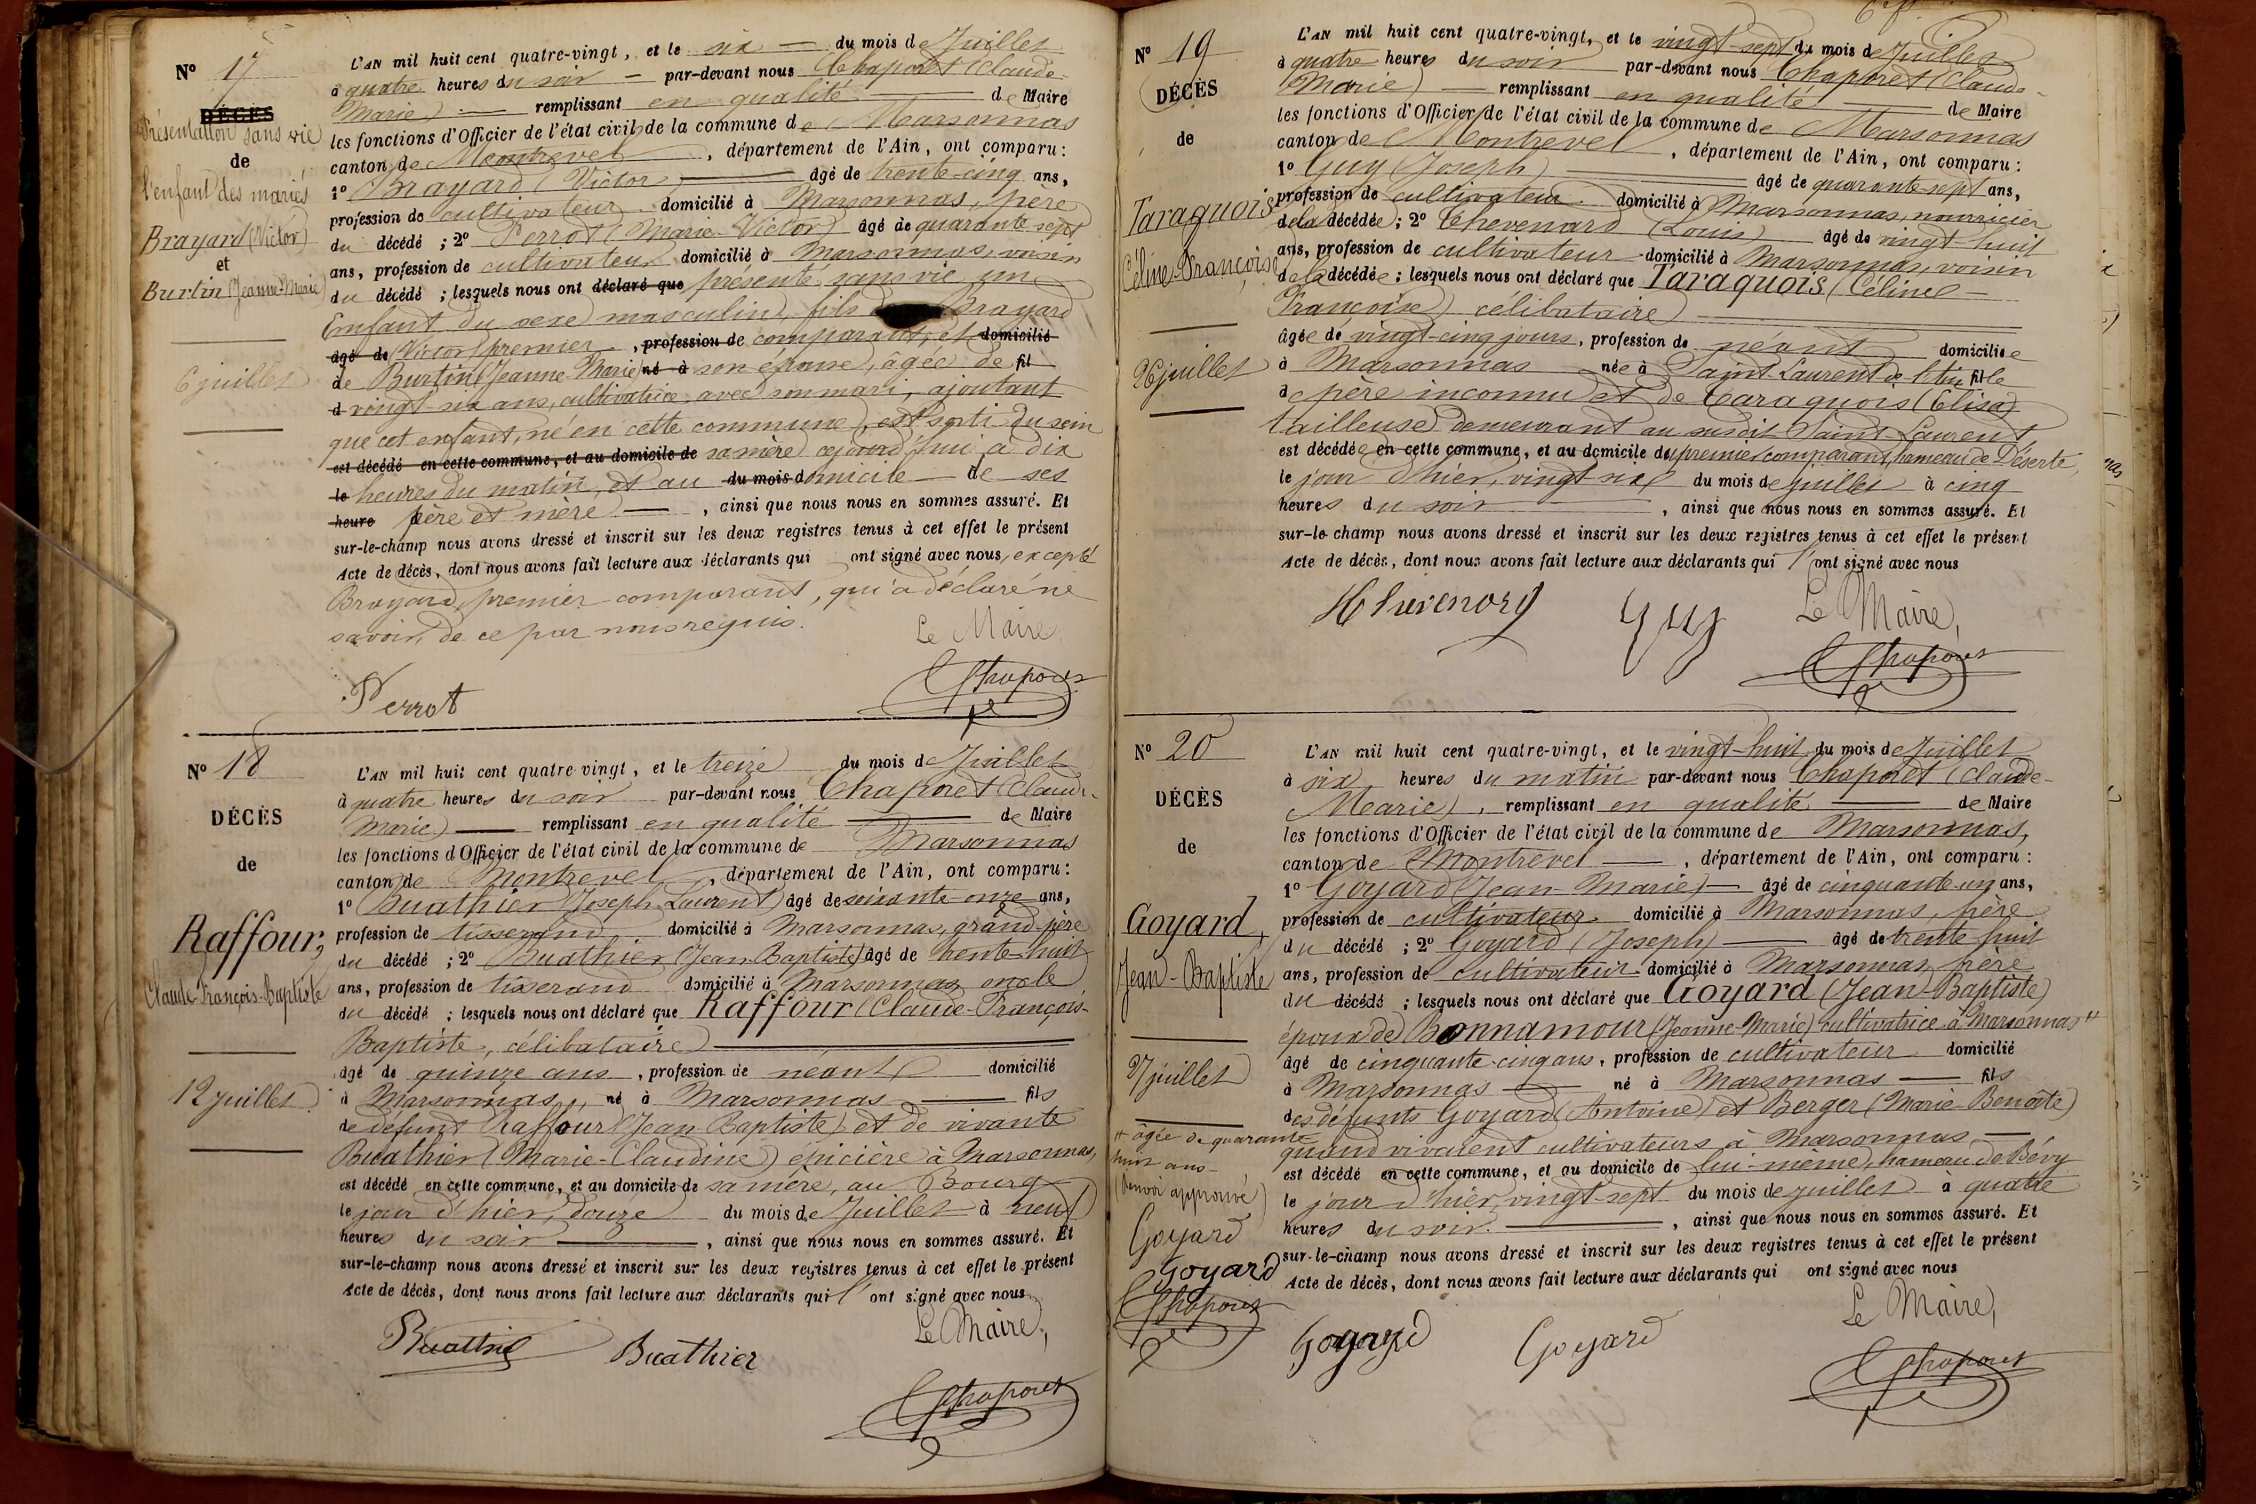 N° 17
DÉCÈS
Présentation sans vie
de
l'enfant des mariés
Brayard (Victor)
et
Burtin (Jeanne-Marie)
6 juillet
L'AN mil huit cent quatre-vingt, et le six — du mois de Juillet
à quatre heures du soir — par-devant nous Chaporet (Claude-
Marie) — remplissant en qualité — de Maire
les fonctions d'Officier de l'état civil de la commune de Marsonnas
canton de Montrevel, département de l'Ain, ont comparu :
1° Brayard (Victor) — âgé de trente-cinq ans,
profession de cultivateur domicilié à Marsonnas, père
du décédé ; 2° Perrot (Marie-Victor) âgé de quarante-sept
ans, profession de cultivateur domicilié à Marsonnas, voisin
du décédé ; lesquels nous ont déclaré que présenté sans vie un
Enfant du sexe masculin, fils Brayard
âgé de (Victor) premier, profession de comparant, et domicilié
de Burtin (Jeanne-Marie) né à son épouse, âgée de fil
d vingt-six ans, cultivatrice avec son mari, ajoutant
que cet enfant, né en cette commune, est sorti du sein
est décédé en cette commune, et au domicile de sa mère aujourd'hui à dix
le heures du matin, et au du mois domicile de ses
heure père et mère —, ainsi que nous nous en sommes assuré. Et
sur-le-champ nous avons dressé et inscrit sur les deux registres tenus à cet effet le présent
Acte de décès, dont nous avons fait lecture aux déclarants qui ont signé avec nous, excepté
Brayard, premier comparant, qui a déclaré ne
savoir, de ce par nous requis.
Le Maire,
Perrot
Chaporet
N° 18
DÉCÈS
de
Raffour,
Claude-François-Baptiste
12 juillet
L'AN mil huit cent quatre-vingt, et le treize du mois de Juillet
à quatre heures du soir par-devant nous Chaporet (Claude-
Marie) — remplissant en qualité — de Maire
les fonctions d'Officier de l'état civil de la commune de Marsonnas
canton de Montrevel, département de l'Ain, ont comparu :
1° Buathier (Joseph-Laurent) âgé de soixante-onze ans,
profession de tisserand domicilié à Marsonnas, grand-père
du décédé ; 2° Buathier (Jean-Baptiste) âgé de trente-huit
ans, profession de tisserand domicilié à Marsonnas, oncle
du décédé ; lesquels nous ont déclaré que Raffour (Claude-François-
Baptiste, célibataire
âgé de quinze ans, profession de néant domicilié
à Marsonnas, né à Marsonnas — fils
de défunt Raffour (Jean-Baptiste) et de vivante
Buathier (Marie-Claudine) épicière à Marsonnas,
est décédé en cette commune, et au domicile de sa mère, au Bourg
le jour d'hier, douze du mois de Juillet à neuf
heures du soir —, ainsi que nous nous en sommes assuré. Et
sur-le-champ nous avons dressé et inscrit sur les deux registres tenus à cet effet le présent
Acte de décès, dont nous avons fait lecture aux déclarants qui l'ont signé avec nous
Le Maire,
Buathier
Buathier
Chaporet
N° 19
DÉCÈS
de
Taraquois
Céline-Françoise
26 juillet
L'AN mil huit cent quatre-vingt, et le vingt-sept du mois de Juillet
à quatre heures du soir par-devant nous Chaporet (Claude-
Marie) — remplissant en qualité — de Maire
les fonctions d'Officier de l'état civil de la commune de Marsonnas
canton de Montrevel, département de l'Ain, ont comparu :
1° Guy (Joseph) — âgé de quarante-sept ans,
profession de cultivateur domicilié à Marsonnas, nourricier
de la décédée ; 2° Thevenard (Louis) âgé de vingt-huit
ans, profession de cultivateur domicilié à Marsonnas, voisin
de la décédée ; lesquels nous ont déclaré que Taraquois (Céline-
Françoise) célibataire
âgée de vingt-cinq jours, profession de néant domiciliée
à Marsonnas née à Saint-Laurent-de-l'Ain fille
de père inconnu et de Taraquois (Elisa)
tailleuse demeurant au susdit Saint-Laurent
est décédée en cette commune, et au domicile du premier comparant, hameau de Déserte
le jour d'hier, vingt-six du mois de juillet à cinq
heures du soir —, ainsi que nous nous en sommes assuré. Et
sur-le-champ nous avons dressé et inscrit sur les deux registres tenus à cet effet le présent
Acte de décès, dont nous avons fait lecture aux déclarants qui l'ont signé avec nous
Thevenard
Guy
Le Maire,
Chaporet
N° 20
DÉCÈS
de
Goyard,
Jean-Baptiste
27 juillet
L'AN mil huit cent quatre-vingt, et le vingt-huit du mois de Juillet
à six heures du matin par-devant nous Chaporet (Claude-
Marie), remplissant en qualité — de Maire
les fonctions d'Officier de l'état civil de la commune de Marsonnas,
canton de Montrevel —, département de l'Ain, ont comparu :
1° Goyard (Jean-Marie) — âgé de cinquante-un ans,
profession de cultivateur domicilié à Marsonnas, frère
du décédé ; 2° Goyard (Joseph) — âgé de trente-huit
ans, profession de cultivateur domicilié à Marsonnas, frère
du décédé ; lesquels nous ont déclaré que Goyard (Jean-Baptiste)
époux de Bonnamour (Jeanne-Marie) cultivatrice à Marsonnas #
âgé de cinquante-cinq ans, profession de cultivateur domicilié
à Marsonnas — né à Marsonnas — fils
des défunts Goyard (Antoine) et Berger (Marie-Benoîte)
quand vivaient cultivateurs à Marsonnas —
est décédé en cette commune, et au domicile de lui-même, hameau de Bévy
le jour d'hier, vingt-sept du mois de juillet à quatre
heures du soir. —, ainsi que nous nous en sommes assuré. Et
sur-le-champ nous avons dressé et inscrit sur les deux registres tenus à cet effet le présent
Acte de décès, dont nous avons fait lecture aux déclarants qui ont signé avec nous
# âgée de quarante-
huit ans
(Renvoi approuvé)
Goyard
Goyard
Chaporet
Le Maire,
Goyard
Goyard
Chaporet